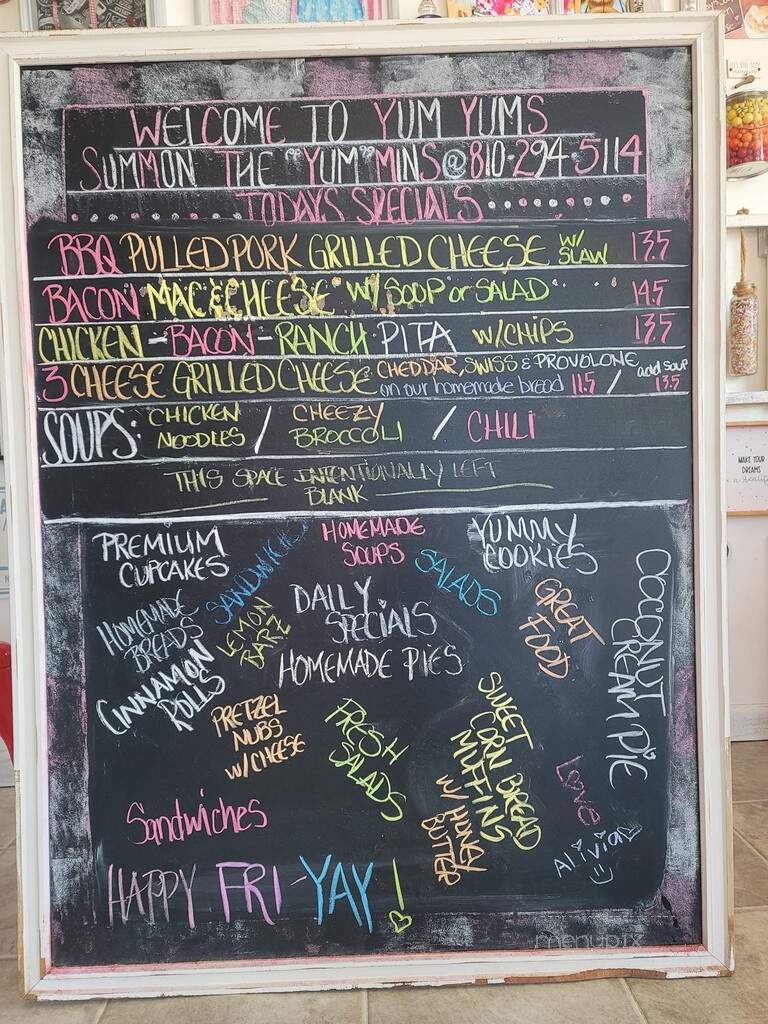 WELCOME TO YUM YUMS
SUMMON THE "YUM"MINS @ 810-294-5114
TODAYS SPECIALS
BBQ PULLED PORK GRILLED CHEESE W/ SLAW 13.5
BACON MAC & CHEESE W/ SOUP or SALAD 14.5
CHICKEN-BACON-RANCH PITA W/CHIPS 13.5
3 CHEESE GRILLED CHEESE CHEDDAR, SWISS & PROVOLONE
on our homemade bread 11.5 / add soup 13.5
SOUPS: CHICKEN NOODLES / CHEEZY BROCCOLI / CHILI
THIS SPACE INTENTIONALLY LEFT
BLANK
PREMIUM
CUPCAKES
SANDWICHES
HOMEMADE
SOUPS
SALADS
YUMMY
COOKIES
HOMEMADE
BREADS
LEMON
BARZ
DAILY
SPECIALS
GREAT
FOOD
COCONUT
CREAM PIE
CINNAMON
ROLLS
HOMEMADE PIES
PRETZEL
NUBS
W/CHEESE
FRESH
SALADS
SWEET
CORN BREAD
MUFFINS
W/ HONEY
BUTTER
LOVE
Alivia
Sandwiches
HAPPY FRI-YAY!
menupix
MAKE YOUR
DREAMS